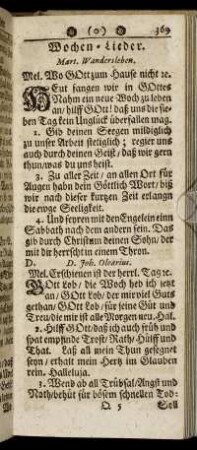 (o) 369
Wochen-Lieder.
Mart. Wandersleben.
Mel. Wo GOtt zum Hause nicht ꝛc.
HEut fangen wir in GOttes
Nahm ein neue Woch zu leben
an/ hilff GOtt! daß uns die sie-
ben Tag kein Unglück überfallen mag.
2. Gib deinen Seegen mildiglich
zu unser Arbeit stetiglich; regier uns
auch durch deinen Geist/ daß wir gern
thun/ was du uns heist.
3. Zu aller Zeit/ an allen Ort für
Augen habn dein Göttlich Wort/ biß
wir nach dieser kurtzen Zeit erlangn
die ewge Seeligkeit.
4. Und feyren mit den Engelein einn
Sabbath nach dem andern fein. Das
gib durch Christum deinen Sohn/ der
mit dir herrscht in einem Thron.
D. D. Joh. Olearius.
Mel. Erschienen ist der herrl. Tag ꝛc.
GOtt Lob/ die Woch heb ich jetzt
an/ GOtt Lob/ der mir viel Guts
gethan/ GOtt Lob/ für seine Güt und
Treu/ die mir ist alle Morgen neu. Hal.
2. Hilff GOtt/ daß ich auch früh und
spat empfinde Trost/ Rath/ Hülff und
That. Laß all mein Thun gesegnet
seyn/ erhalt mein Hertz im Glauben
rein. Halleluja.
3. Wend ab all Trübsal/ Angst und
Noth/ behüt für bösem schnellen Tod:
Q 5 Soll